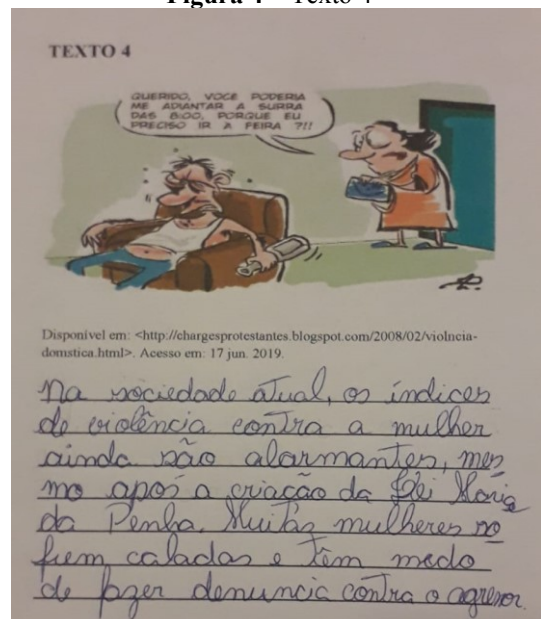 Figura 4 – Texto 4
TEXTO 4
QUERIDO, VOCE PODERIA
ME ADIANTAR A SURRA
DAS 8:00, PORQUE EU
PRECISO IR À FEIRA ?!!
Disponível em: <http://chargesprotestantes.blogspot.com/2008/02/violncia-
domstica.html>. Acesso em: 17 jun. 2019.
Na sociedade atual, os índices
de violência contra a mulher
ainda são alarmantes, mes
mo após a criação da Lei Maria
da Penha. Muitas mulheres so
frem caladas e têm medo
de fazer denuncia contra o agressor.